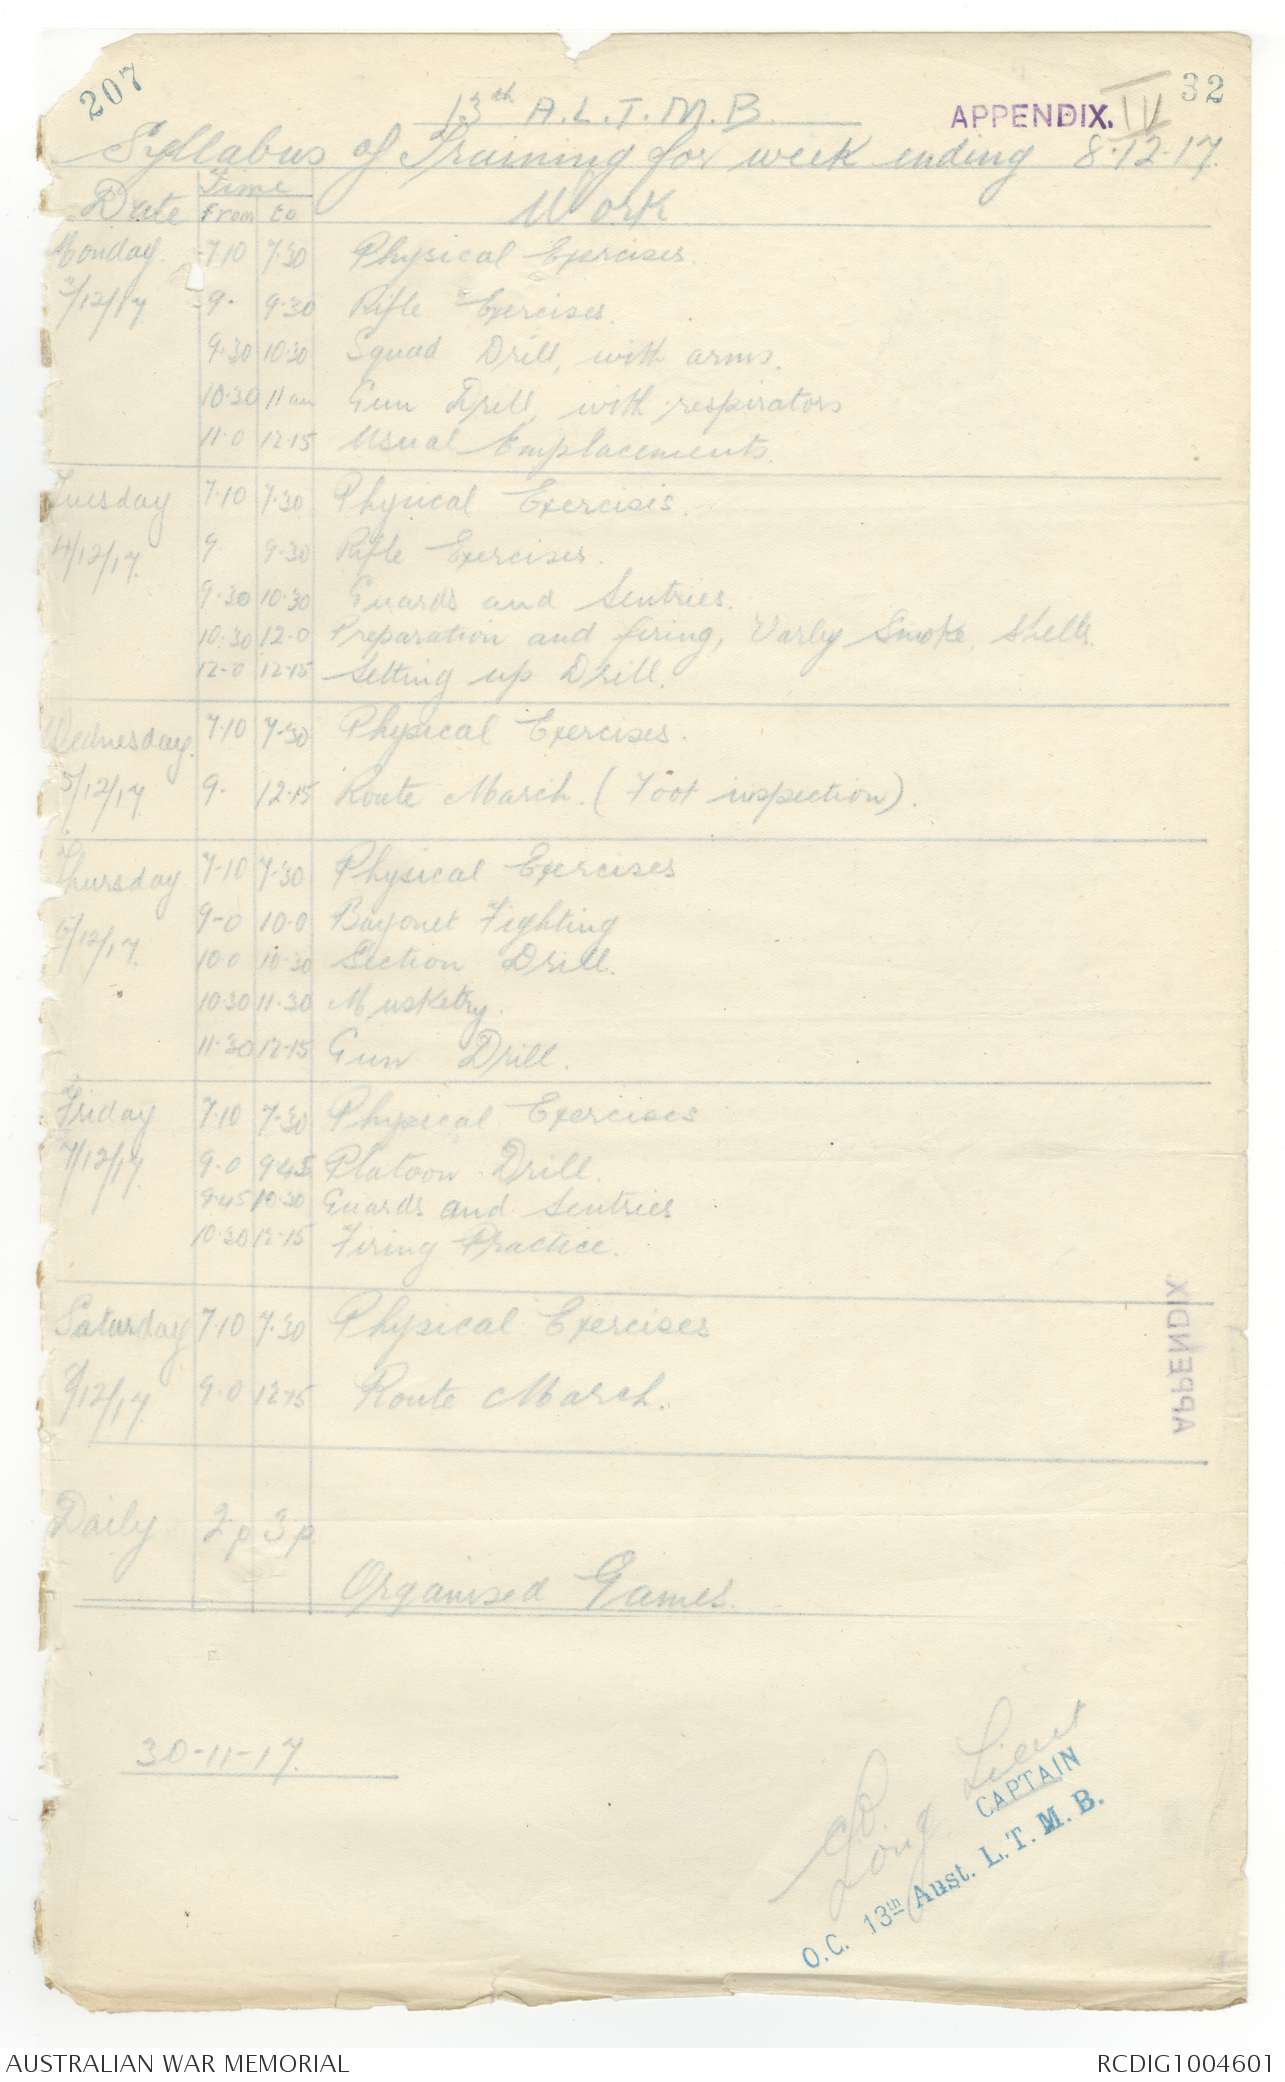 207
32
13th A.L.T.M.B.
APPENDIX. III
Syllabus of Training for week ending 8.12.17.
Date Time Work
From to
Monday 7.10 7.30 Physical Exercises.
3/12/17 9. 9.30 Rifle Exercises.
9.30 10.30 Squad Drill, with arms.
10.30 11 am Gun Drill, with respirators
11.0 12.15 Usual Emplacements.
Tuesday 7.10 7.30 Physical Exercises.
4/12/17. 9. 9.30 Rifle Exercises.
9.30 10.30 Guards and Sentries.
10.30 12.0 Preparation and firing, Smoke Shells.
12-0 12.15 Setting up Drill.
Wednesday. 7.10 7.30 Physical Exercises.
5/12/17. 9. 12.15 Route March. (Foot inspection).
Thursday 7.10 7.30 Physical Exercises
6/12/17. 9-0 10.0 Bayonet Fighting
10.0 10.30 Section Drill.
10.30 11.30 Musketry.
11.30 12.15 Gun Drill.
Friday 7.10 7.30 Physical Exercises
7/12/17. 9.0 9.45 Platoon Drill.
9.45 10.30 Guards and Sentries
10.30 12.15 Firing Practice.
Saturday 7.10 7.30 Physical Exercises
8/12/17. 9.0 12.15 Route March.
Daily 2.p 3.p
Organised Games.
30-11-17.
Long Lieut
CAPTAIN
O.C. 13th Aust. L.T.M.B.
AUSTRALIAN WAR MEMORIAL
RCDIG1004601